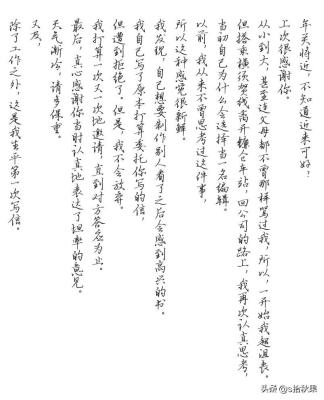 年关将近，不知道近来可好？
上次很感谢你。
从小到大，甚至连父母都不曾那样骂过我，所以，一开始我超沮丧。
但搭乘横须贺线离开镰仓车站，回公司的路上，我再次认真思考，
当初自己为什么会选择当一名编辑。
以前，我从来不曾思考过这件事，
所以这种感觉很新鲜。
我发现，自己想要制作别人看了之后会感到高兴的书。
我自己写了原本打算委托你写的信，
但遭到拒绝了。但是，我不会放弃。
我打算一次又一次地邀请，直到对方答应为止。
最后，真心感谢你当时认真地表达了坦率的意见。
天气渐冷，请多保重。
又及，
除了工作之外，这是我生平第一次写信。
头条 @s拾秋渠